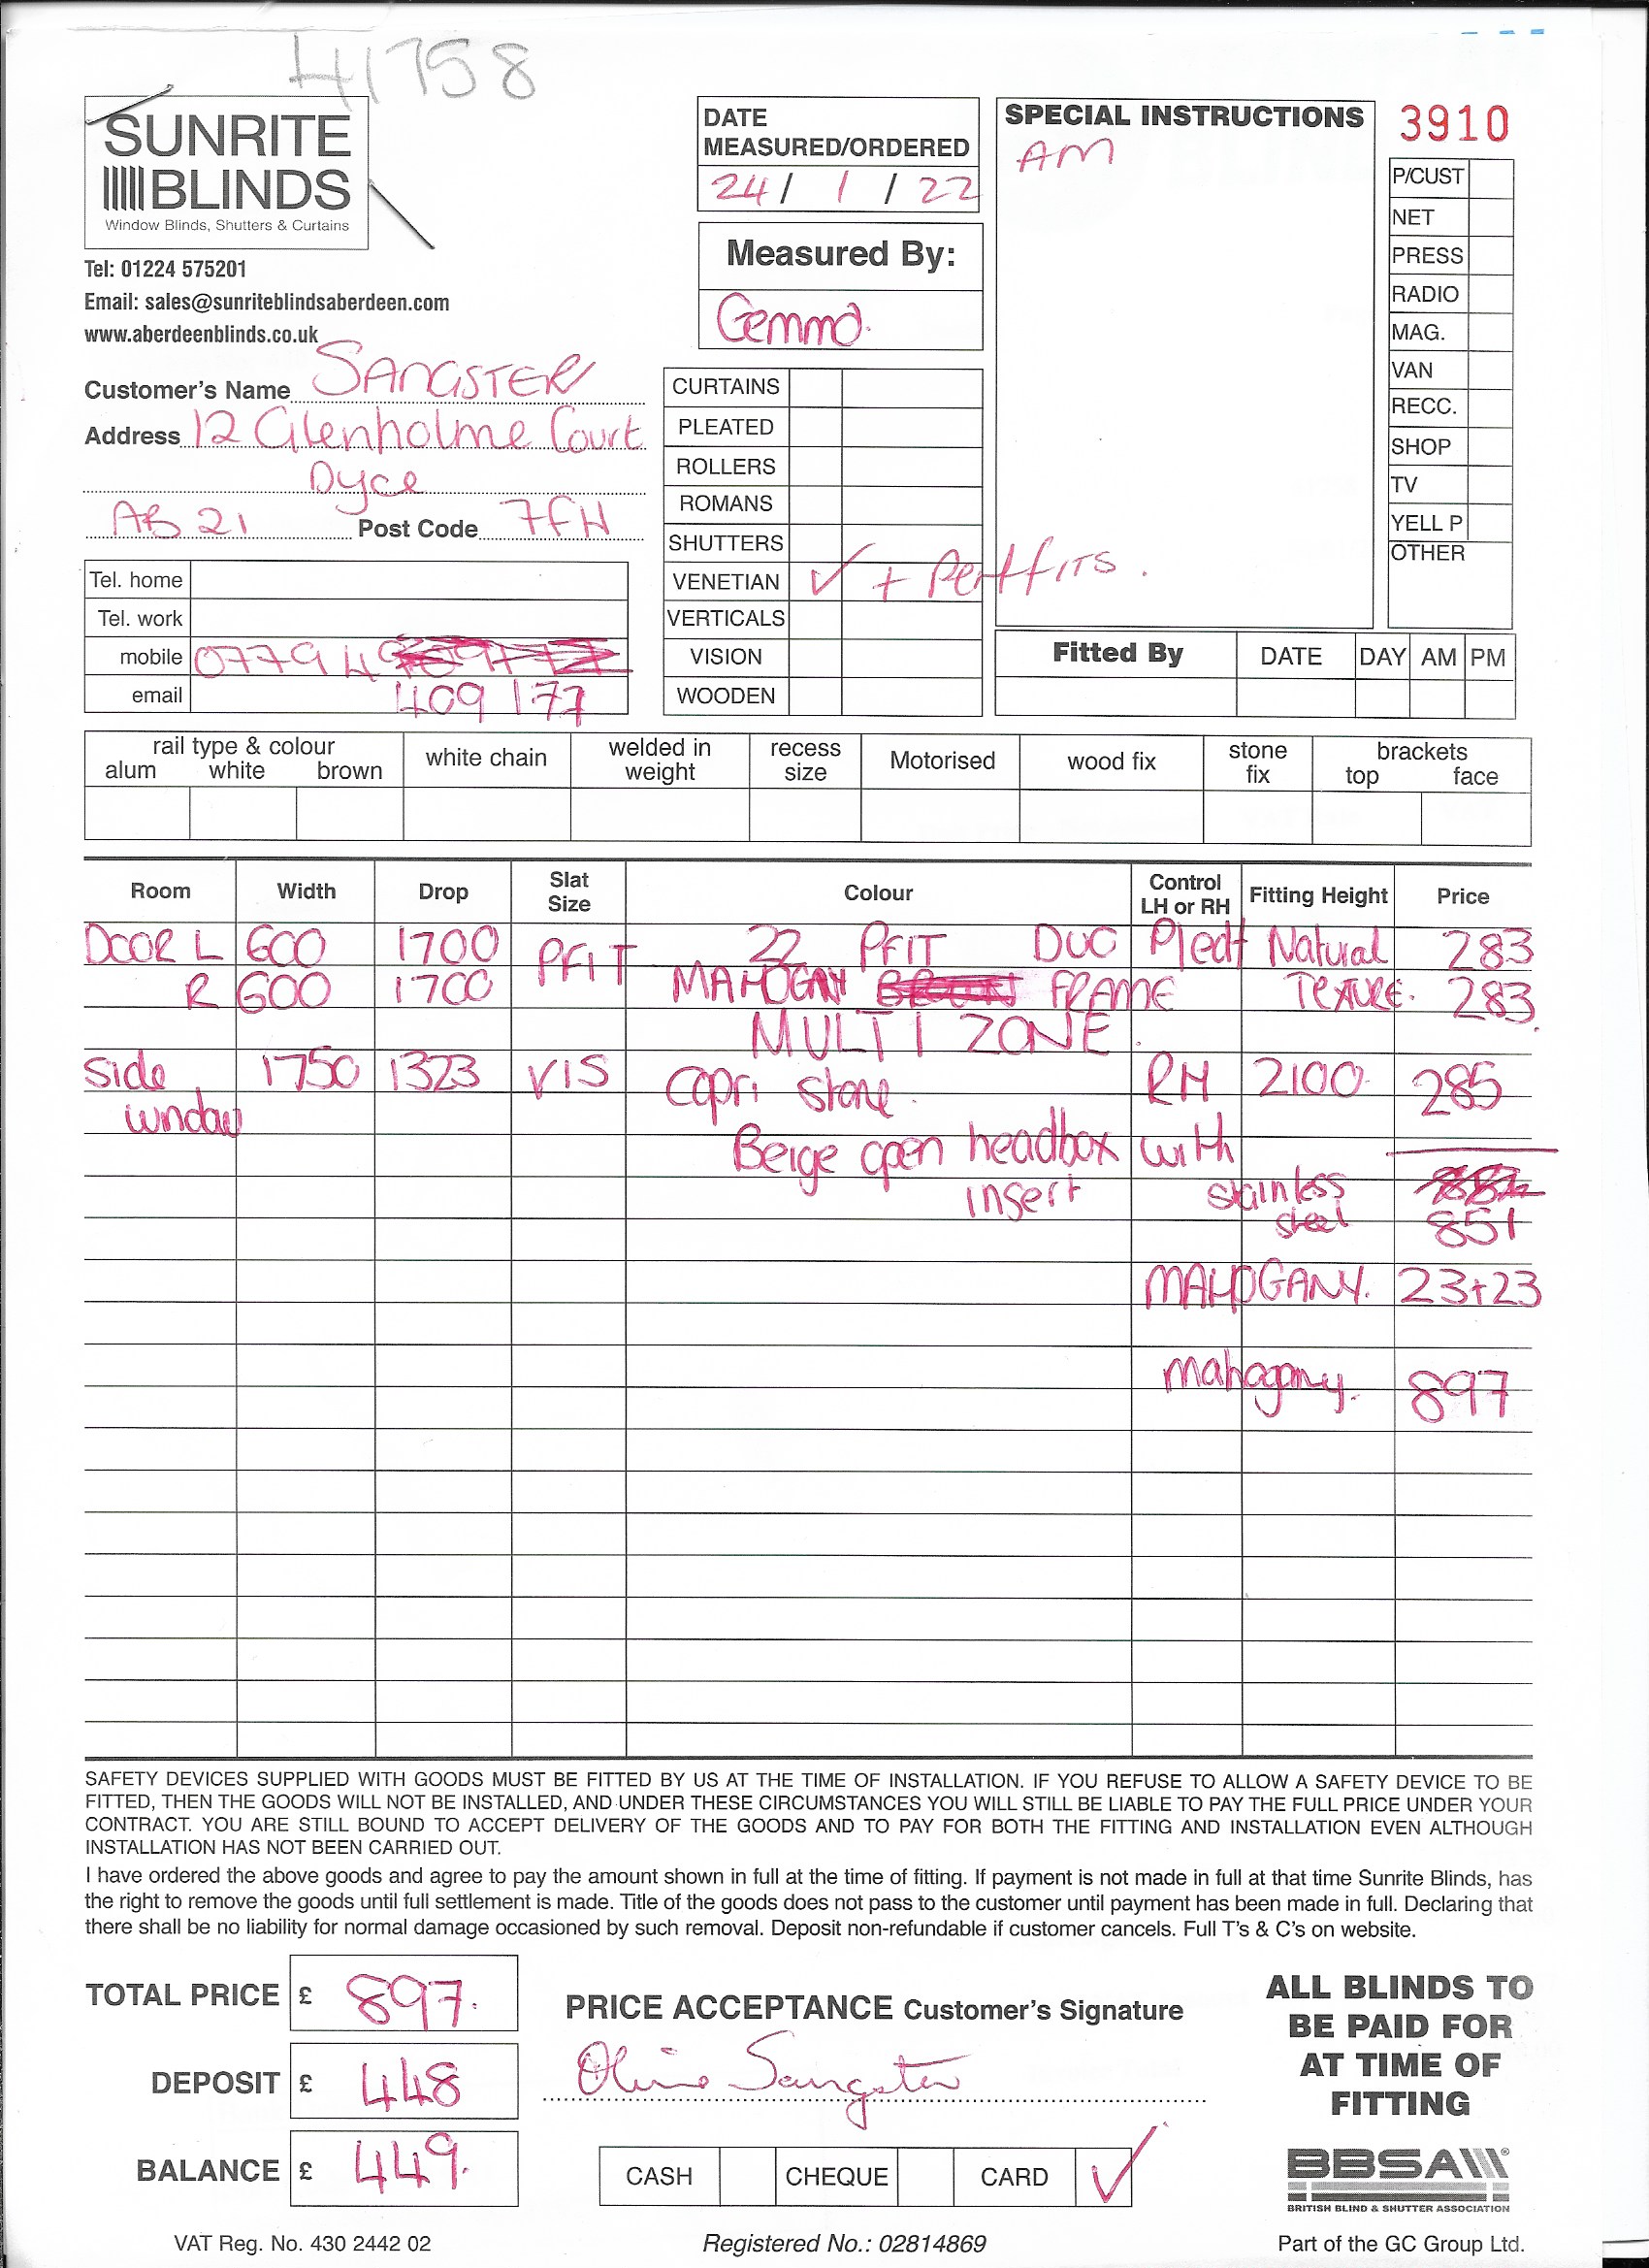 41758
SUNRITE
BLINDS
Window Blinds, Shutters & Curtains
Tel: 01224 575201
Email: sales@sunriteblindsaberdeen.com
www.aberdeenblinds.co.uk
DATE
MEASURED/ORDERED
24 / 1 / 22
Measured By:
Gemma.
SPECIAL INSTRUCTIONS
AM
3910
P/CUST
NET
PRESS
RADIO
MAG.
VAN
RECC.
SHOP
TV
YELL P
OTHER
Customer's Name SANGSTER
Address 12 Glenholme Court
Dyce
AB 21 Post Code 7FH
Tel. home
Tel. work
mobile 07794
email 409 177
CURTAINS
PLEATED
ROLLERS
ROMANS
SHUTTERS
VENETIAN ✓ + Perffits.
VERTICALS
VISION
WOODEN
Fitted By DATE DAY AM PM
rail type & colour white chain welded in weight recess size Motorised wood fix stone fix brackets
alum white brown top face
Room Width Drop Slat Size Colour Control LH or RH Fitting Height Price
DOOR L 600 1700 PFIT 22 PFIT DUO Pleat Natural 283
R 600 1700 MAHOGANY FRAME TEXTURE. 283.
MULTI ZONE.
Side 1750 1323 VIS Capri stone. RH 2100 285
window
Beige open headbox with
insert stainless
steel 851
MAHOGANY. 23+23
mahogany. 897
SAFETY DEVICES SUPPLIED WITH GOODS MUST BE FITTED BY US AT THE TIME OF INSTALLATION. IF YOU REFUSE TO ALLOW A SAFETY DEVICE TO BE
FITTED, THEN THE GOODS WILL NOT BE INSTALLED, AND UNDER THESE CIRCUMSTANCES YOU WILL STILL BE LIABLE TO PAY THE FULL PRICE UNDER YOUR
CONTRACT. YOU ARE STILL BOUND TO ACCEPT DELIVERY OF THE GOODS AND TO PAY FOR BOTH THE FITTING AND INSTALLATION EVEN ALTHOUGH
INSTALLATION HAS NOT BEEN CARRIED OUT.
I have ordered the above goods and agree to pay the amount shown in full at the time of fitting. If payment is not made in full at that time Sunrite Blinds, has
the right to remove the goods until full settlement is made. Title of the goods does not pass to the customer until payment has been made in full. Declaring that
there shall be no liability for normal damage occasioned by such removal. Deposit non-refundable if customer cancels. Full T's & C's on website.
TOTAL PRICE £ 897.
DEPOSIT £ 448
BALANCE £ 449.
PRICE ACCEPTANCE Customer's Signature
Sangster
CASH CHEQUE CARD ✓
ALL BLINDS TO
BE PAID FOR
AT TIME OF
FITTING
BBSA
BRITISH BLIND & SHUTTER ASSOCIATION
VAT Reg. No. 430 2442 02
Registered No.: 02814869
Part of the GC Group Ltd.